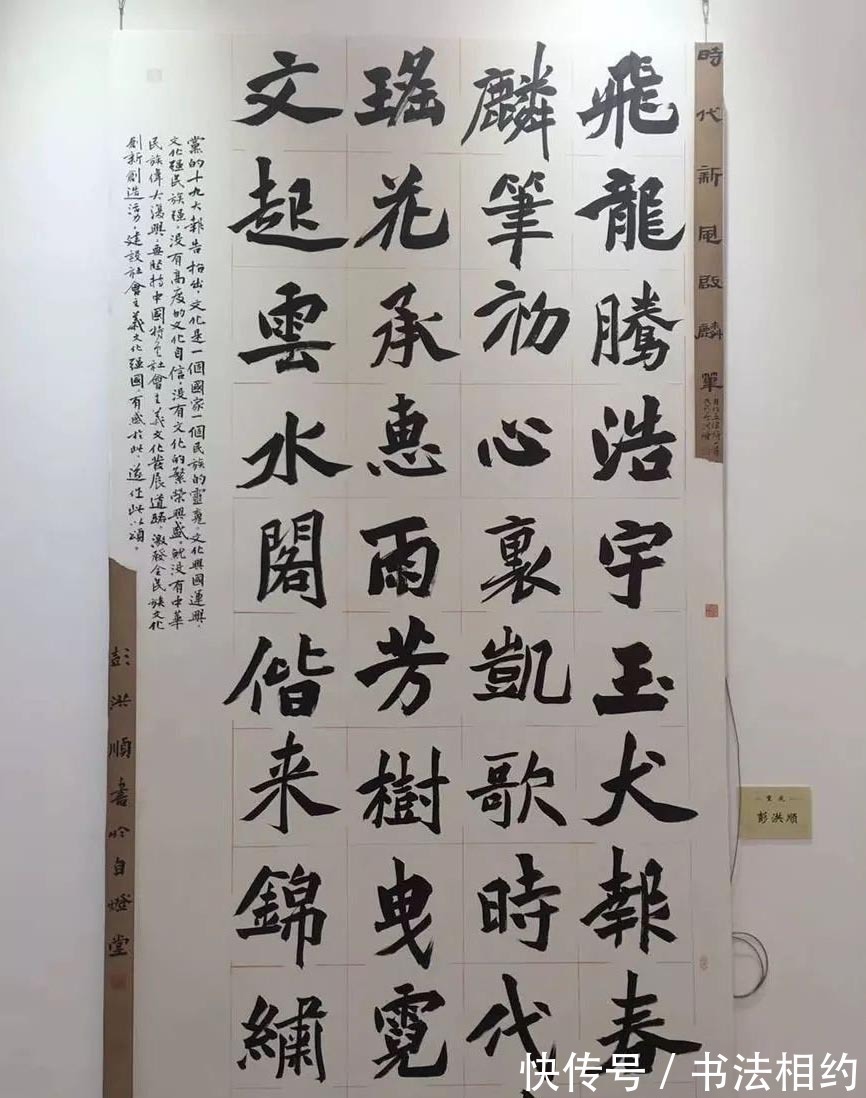 時代新風啟麟筆
飛龍騰浩宇玉犬報春
麟筆初心裏凱歌時代
瑤花承惠雨芳樹曳霓
文起雲水閣偕来錦繡
黨的十九大報告指出，文化是一個國家一個民族的靈魂。文化興國運興，
文化强民族强。没有高度的文化自信，没有文化的繁榮興盛，就没有中華
民族偉大復興。要堅持中國特色社會主義文化發展道路，激發全民族文化
創新創造活力，建設社會主義文化强國。有感於此，遂作此以頌。
彭洪順書於自燈堂
重慶
彭洪順
快传号 / 书法相约